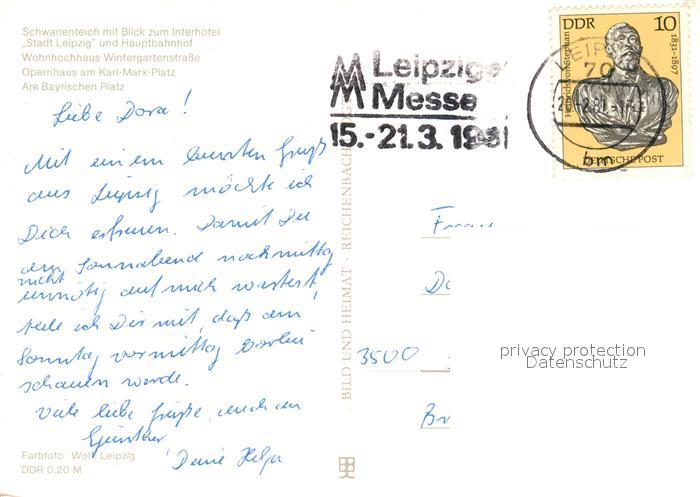 Schwanenteich mit Blick zum Interhotel
„Stadt Leipzig" und Hauptbahnhof
Wohnhochhaus Wintergartenstraße
Opernhaus am Karl-Marx-Platz
Am Bayrischen Platz
Liebe Dora!
Mit einem bunten Gruß
aus Leipzig möchte ich
Dich erfreuen. Damit Du
am Sonnabend nachmittag
nicht
unnötig auf mich wartest,
teile ich Dir mit, daß am
Sonntag vormittag vorbei
schauen werde.
Viele liebe Grüße, auch an
Günther
Deine Helga
Farbfoto: Wolf, Leipzig
DDR 0,20 M
BILD UND HEIMAT · REICHENBACH
Leipziger
Messe
15.-21.3.1981
DDR 10
Heinrich von Stephan
1831-1897
DEUTSCHE POST
1981
LEIPZIG
70
bm
Frau
Do
3500
Br
privacy protection
Datenschutz